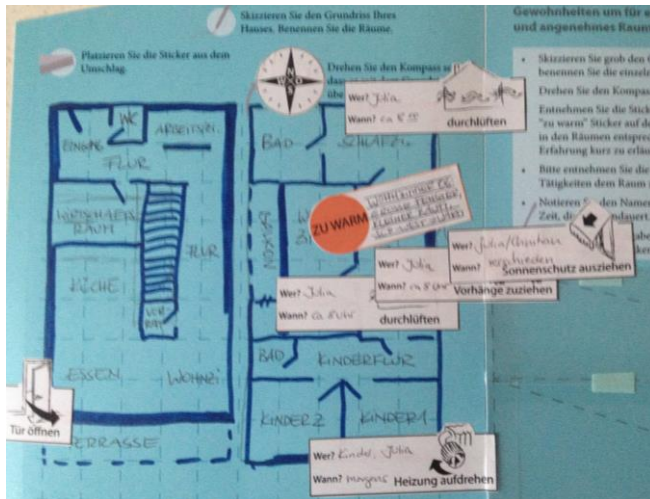 Skizzieren Sie den Grundriss Ihres
Hauses. Benennen Sie die Räume.
Platzieren Sie die Sticker aus dem
Umschlag.
Drehen Sie den Kompass
Gewohnheiten um für
und angenehmes
• Skizzieren Sie grob den
benennen Sie die
Drehen Sie den
Entnehmen Sie die
"zu warm" Sticker auf
in den Räumen
Erfahrung kurz zu
• Bitte entnehmen Sie die
Tätigkeiten dem Raum
• Notieren den
Zeit,
N
O
S
W
WC
EINGANG
FLUR
KÜCHE
FLUR
VOR
RAT
ESSEN
WOHNZI
TERRASSE
Tür öffnen
BAD
SCHLAFZI.
BALKON
ZU WARM
BAD
KINDERFLUR
KINDER 2
KINDER 1
Wer? Julia
Wann? ca 8
durchlüften
Wer? Julia
Wann?
Sonnenschutz ausziehen
Wer? Julia
Wann? ca 8 Uhr
Vorhänge zuziehen
Wer? Julia
Wann? ca 8 Uhr
durchlüften
Wer? Kinder, Julia
Wann? morgens
Heizung aufdrehen